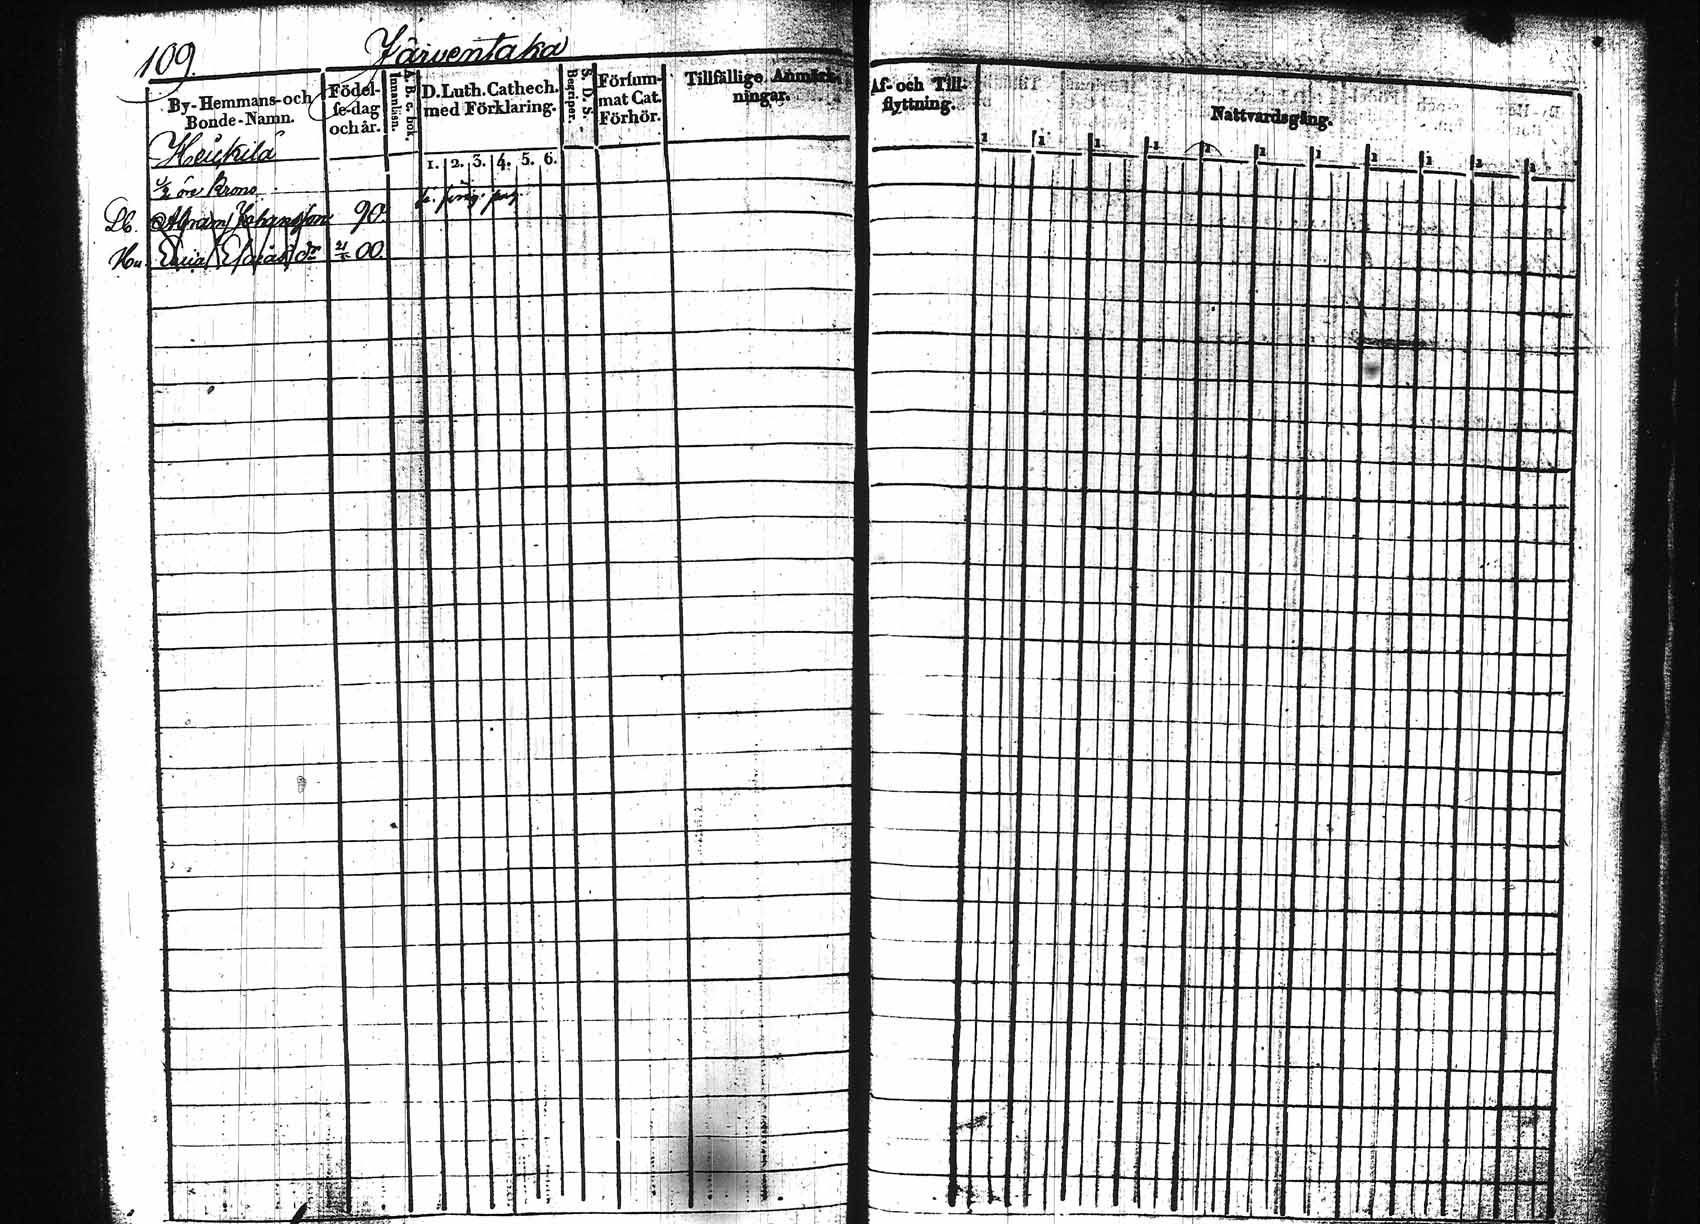 109. Järventaka
By-Hemmans-och Bonde-Namn.
Födel-se-dag och år.
A. B. c. bok. Innanläsn.
D. Luth. Cathech. med Förklaring.
1. 2. 3. 4. 5. 6.
S. D. S. Begriper.
Försum-mat Cat. Förhör.
Tillfällige Anmärk-ningar.
Af- och Till-flyttning.
Nattvardsgång.
1 1 1 1 1 1 1 1 1 1 1
Heikkilä
½ öre Krono
Db. Abram Johansson 90.
Hu. Esaias dr 00.